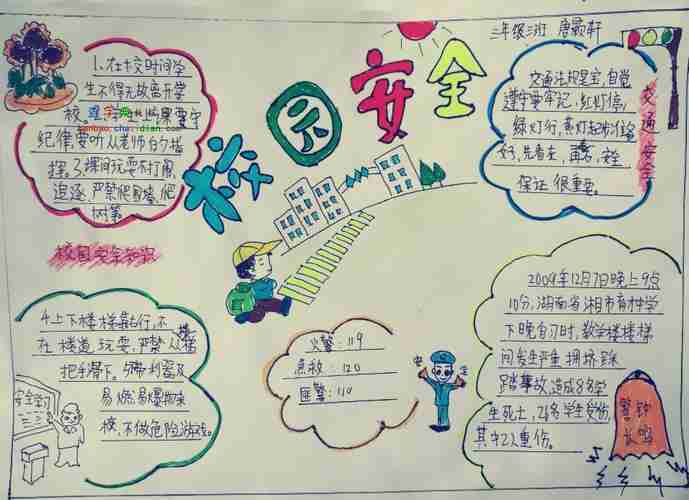 三年级三班 唐颢轩
校园安全
1、在校时间学
生不得无故离开学
校
查字典
sanbao.chazidian.com
纪律,要听从老师的指
挥。3、课间玩耍不打闹、
追逐,严禁爬围墙、爬
树等
校园安全知识
交通法规是宝,自觉
遵守要牢记,红灯停,
绿灯行,黄灯
好,先看左,再看右,
保证很重要。
交通安全
4、上下楼梯靠右行,不
在楼道玩耍,严禁从楼
把手滑下。5、带利器及
易燃易爆物来
校,不做危险游戏。
安全
火警:119
急救:120
匪警:110
2009年12月7日晚上9点
10分,湖南省湘乡市育才中学
下晚自习时,教学楼楼梯
间发生严重拥挤踩
踏事故,造成8名学
生死亡,26名学生受伤
其中2人重伤。
警钟
长鸣